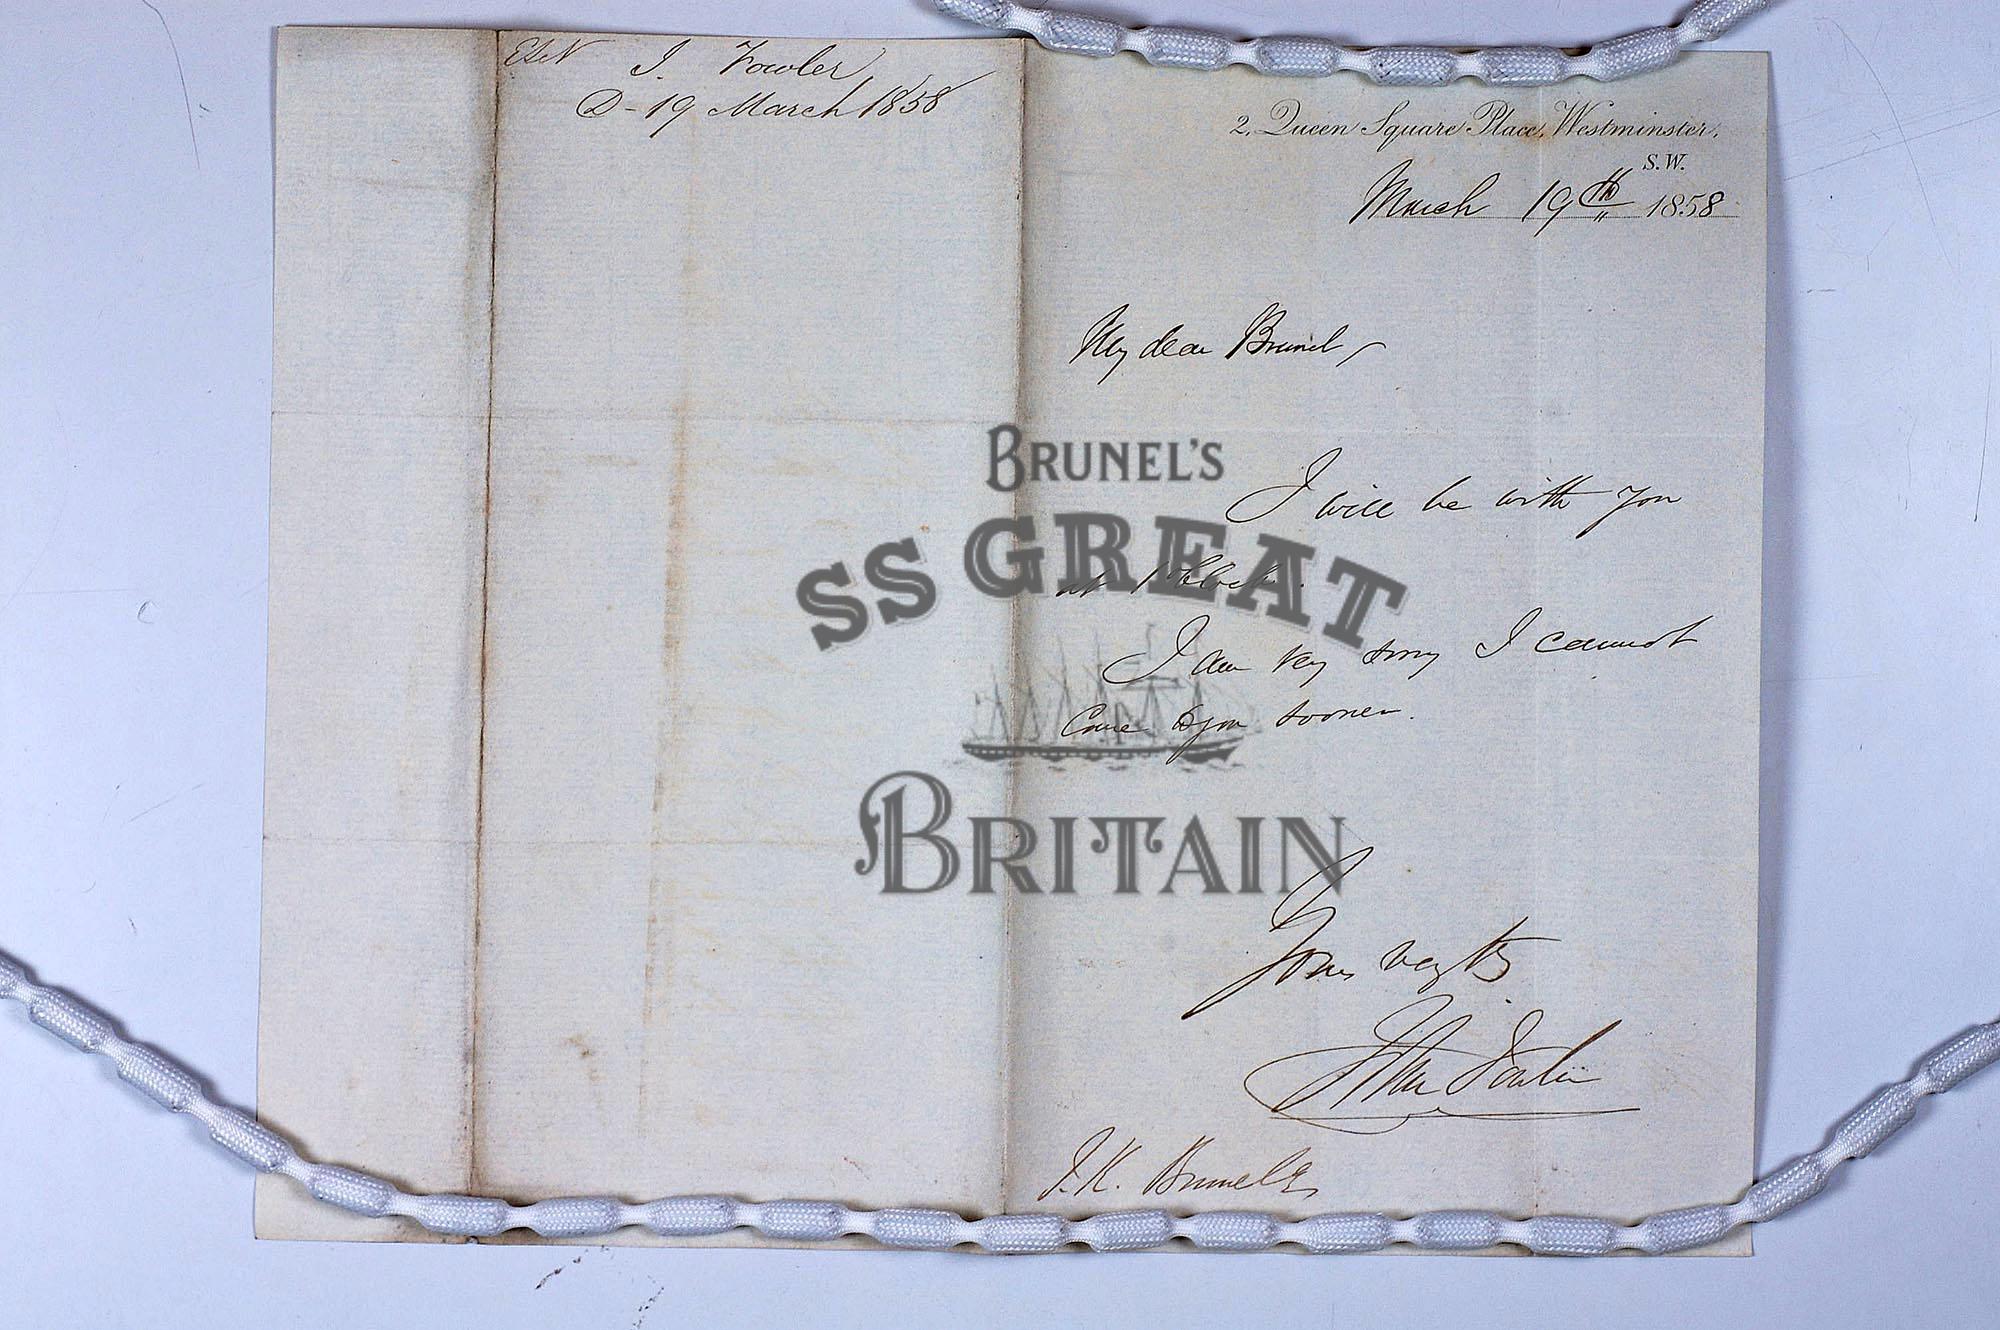 EsN J. Fowler
D- 19 March 1858
2, Queen Square Place, Westminster,
S.W.
March 19th 1858
My dear Brunel,
I will be with you
at 1 o'Clock.
I am very sorry I cannot
come to you sooner.
Yours very tly
John Fowler
I.K. Brunel Es
BRUNEL'S
SS GREAT
BRITAIN